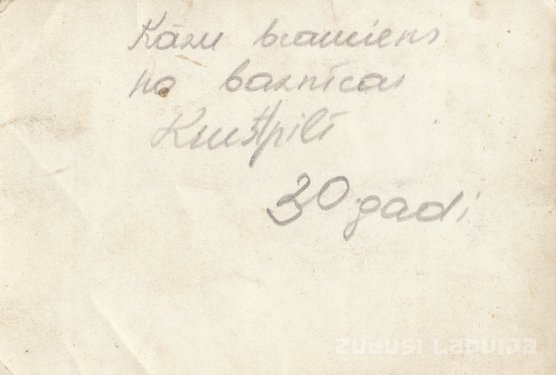 Kāzu brauciens
no baznīcas
Krustpilī
30 gadi
ZUDUSI LATVIJA